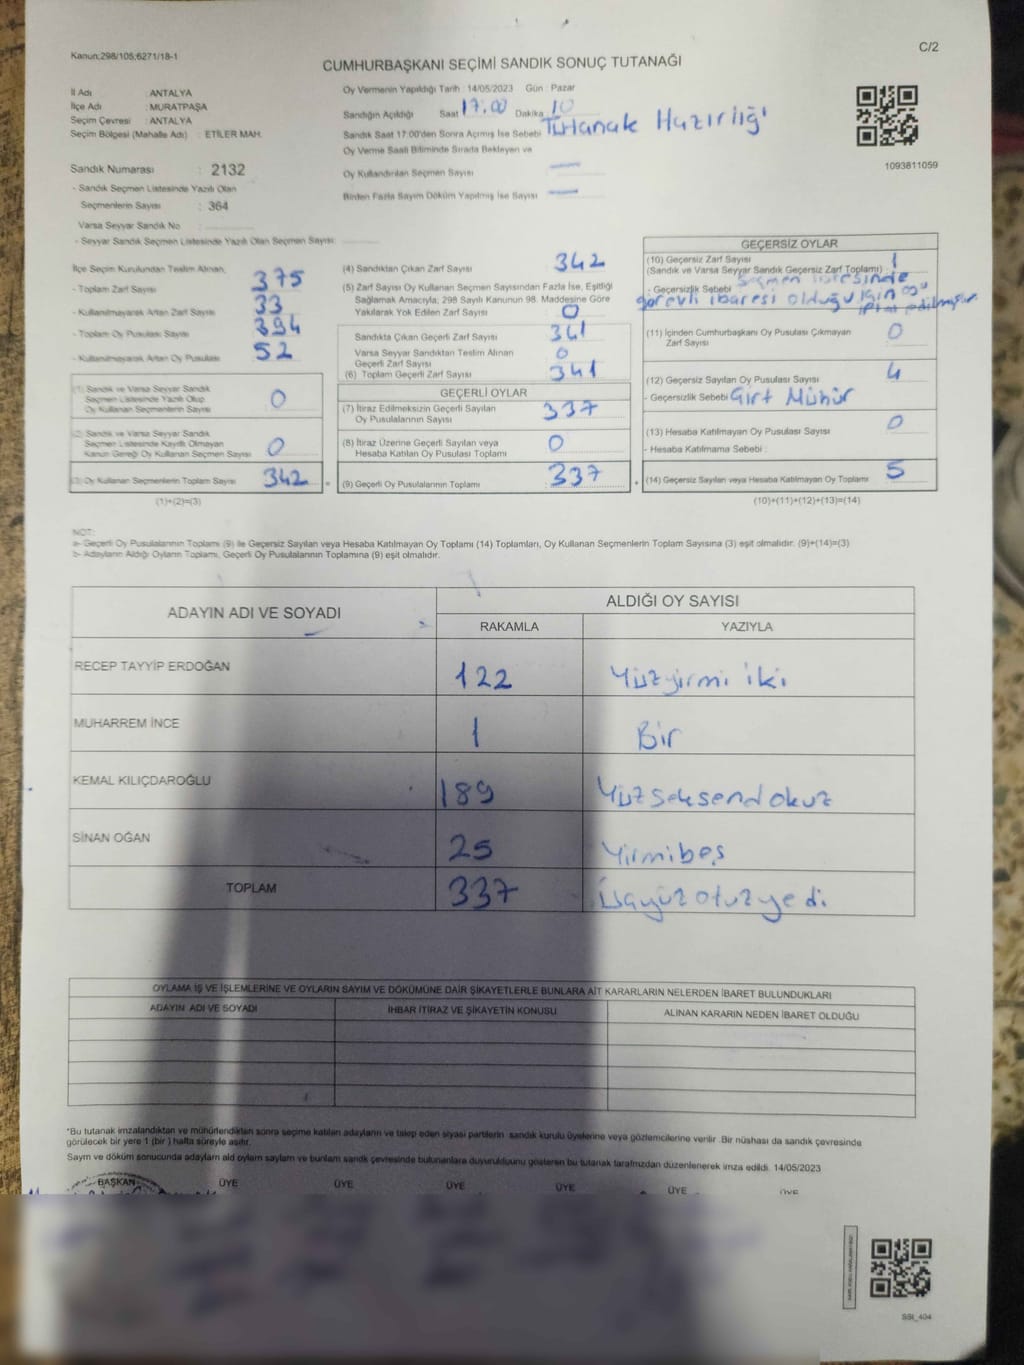 Kanun:298/105;6271/18-1
C/2
CUMHURBAŞKANI SEÇİMİ SANDIK SONUÇ TUTANAĞI
İl Adı : ANTALYA
İlçe Adı : MURATPAŞA
Seçim Çevresi : ANTALYA
Seçim Bölgesi (Mahalle Adı) : ETİLER MAH.
Oy Vermenin Yapıldığı Tarih : 14/05/2023 Gün : Pazar
Sandığın Açıldığı Saat 17:00 Dakika 10
Sandık Saat 17:00'den Sonra Açmış İse Sebebi Tutanak Hazırlığı
Oy Verme Saati Bitiminde Sırada Bekleyen ve
Oy Kullandırılan Seçmen Sayısı —
Birden Fazla Sayım Döküm Yapılmış İse Sayısı —
1093811059
Sandık Numarası : 2132
- Sandık Seçmen Listesinde Yazılı Olan
Seçmenlerin Sayısı : 364
Varsa Seyyar Sandık No
- Seyyar Sandık Seçmen Listesinde Yazılı Olan Seçmen Sayısı:
İlçe Seçim Kurulundan Teslim Alınan,
- Toplam Zarf Sayısı 375
- Kullanılmayarak Artan Zarf Sayısı 33
- Toplam Oy Pusulası Sayısı 394
- Kullanılmayarak Artan Oy Pusulası 52
(1) Sandık ve Varsa Seyyar Sandık
Seçmen Listesinde Yazılı Olup
Oy Kullanan Seçmenlerin Sayısı 0
(2) Sandık ve Varsa Seyyar Sandık
Seçmen Listesinde Kayıtlı Olmayan
Kanun Gereği Oy Kullanan Seçmen Sayısı 0
(3) Oy Kullanan Seçmenlerin Toplam Sayısı 342
(1)+(2)=(3)
(4) Sandıktan Çıkan Zarf Sayısı 342
(5) Zarf Sayısı Oy Kullanan Seçmen Sayısından Fazla İse, Eşitliği
Sağlamak Amacıyla, 298 Sayılı Kanunun 98. Maddesine Göre
Yakılarak Yok Edilen Zarf Sayısı 0
Sandıkta Çıkan Geçerli Zarf Sayısı 341
Varsa Seyyar Sandıktan Teslim Alınan
Geçerli Zarf Sayısı 0
(6) Toplam Geçerli Zarf Sayısı 341
GEÇERLİ OYLAR
(7) İtiraz Edilmeksizin Geçerli Sayılan
Oy Pusulalarının Sayısı 337
(8) İtiraz Üzerine Geçerli Sayılan veya
Hesaba Katılan Oy Pusulası Toplamı 0
(9) Geçerli Oy Pusulalarının Toplamı 337
GEÇERSİZ OYLAR
(10) Geçersiz Zarf Sayısı 1
(Sandık ve Varsa Seyyar Sandık Geçersiz Zarf Toplamı)
- Geçersizlik Sebebi Seçmen listesinde
görevli ibaresi olduğu için oyu iptal edilmiştir
(11) İçinden Cumhurbaşkanı Oy Pusulası Çıkmayan
Zarf Sayısı 0
(12) Geçersiz Sayılan Oy Pusulası Sayısı 4
- Geçersizlik Sebebi Girt Mühür
(13) Hesaba Katılmayan Oy Pusulası Sayısı 0
- Hesaba Katılmama Sebebi :
(14) Geçersiz Sayılan veya Hesaba Katılmayan Oy Toplamı 5
(10)+(11)+(12)+(13)=(14)
NOT:
a- Geçerli Oy Pusulalarının Toplamı (9) ile Geçersiz Sayılan veya Hesaba Katılmayan Oy Toplamı (14) Toplamları, Oy Kullanan Seçmenlerin Toplam Sayısına (3) eşit olmalıdır. (9)+(14)=(3)
b- Adayların Aldığı Oyların Toplamı, Geçerli Oy Pusulalarının Toplamına (9) eşit olmalıdır.
ADAYIN ADI VE SOYADI
ALDIĞI OY SAYISI
RAKAMLA YAZIYLA
RECEP TAYYİP ERDOĞAN 122 Yüzyirmi iki
MUHARREM İNCE 1 Bir
KEMAL KILIÇDAROĞLU 189 Yüz seksendokuz
SİNAN OĞAN 25 Yirmibeş
TOPLAM 337 Üçyüzotuzyedi
OYLAMA İŞ VE İŞLEMLERİNE VE OYLARIN SAYIM VE DÖKÜMÜNE DAİR ŞİKAYETLERLE BUNLARA AİT KARARLARIN NELERDEN İBARET BULUNDUKLARI
ADAYIN ADI VE SOYADI İHBAR İTİRAZ VE ŞİKAYETİN KONUSU ALINAN KARARIN NEDEN İBARET OLDUĞU
*Bu tutanak imzalandıktan ve mühürlendikten sonra seçime katılan adayların ve talep eden siyasi partilerin sandık kurulu üyelerine veya gözlemcilerine verilir .Bir nüshası da sandık çevresinde
görülecek bir yere 1 (bir ) hafta süreyle asılır.
Sayım ve döküm sonucunda adayların ald oyların sayların ve bunların sandık çevresinde bulunanlara duyurulduğunu gösteren bu tutanak tarafımızdan düzenlenerek imza edildi. 14/05/2023
BAŞKAN ÜYE ÜYE ÜYE ÜYE ÜYE ÜYE
SSI_404